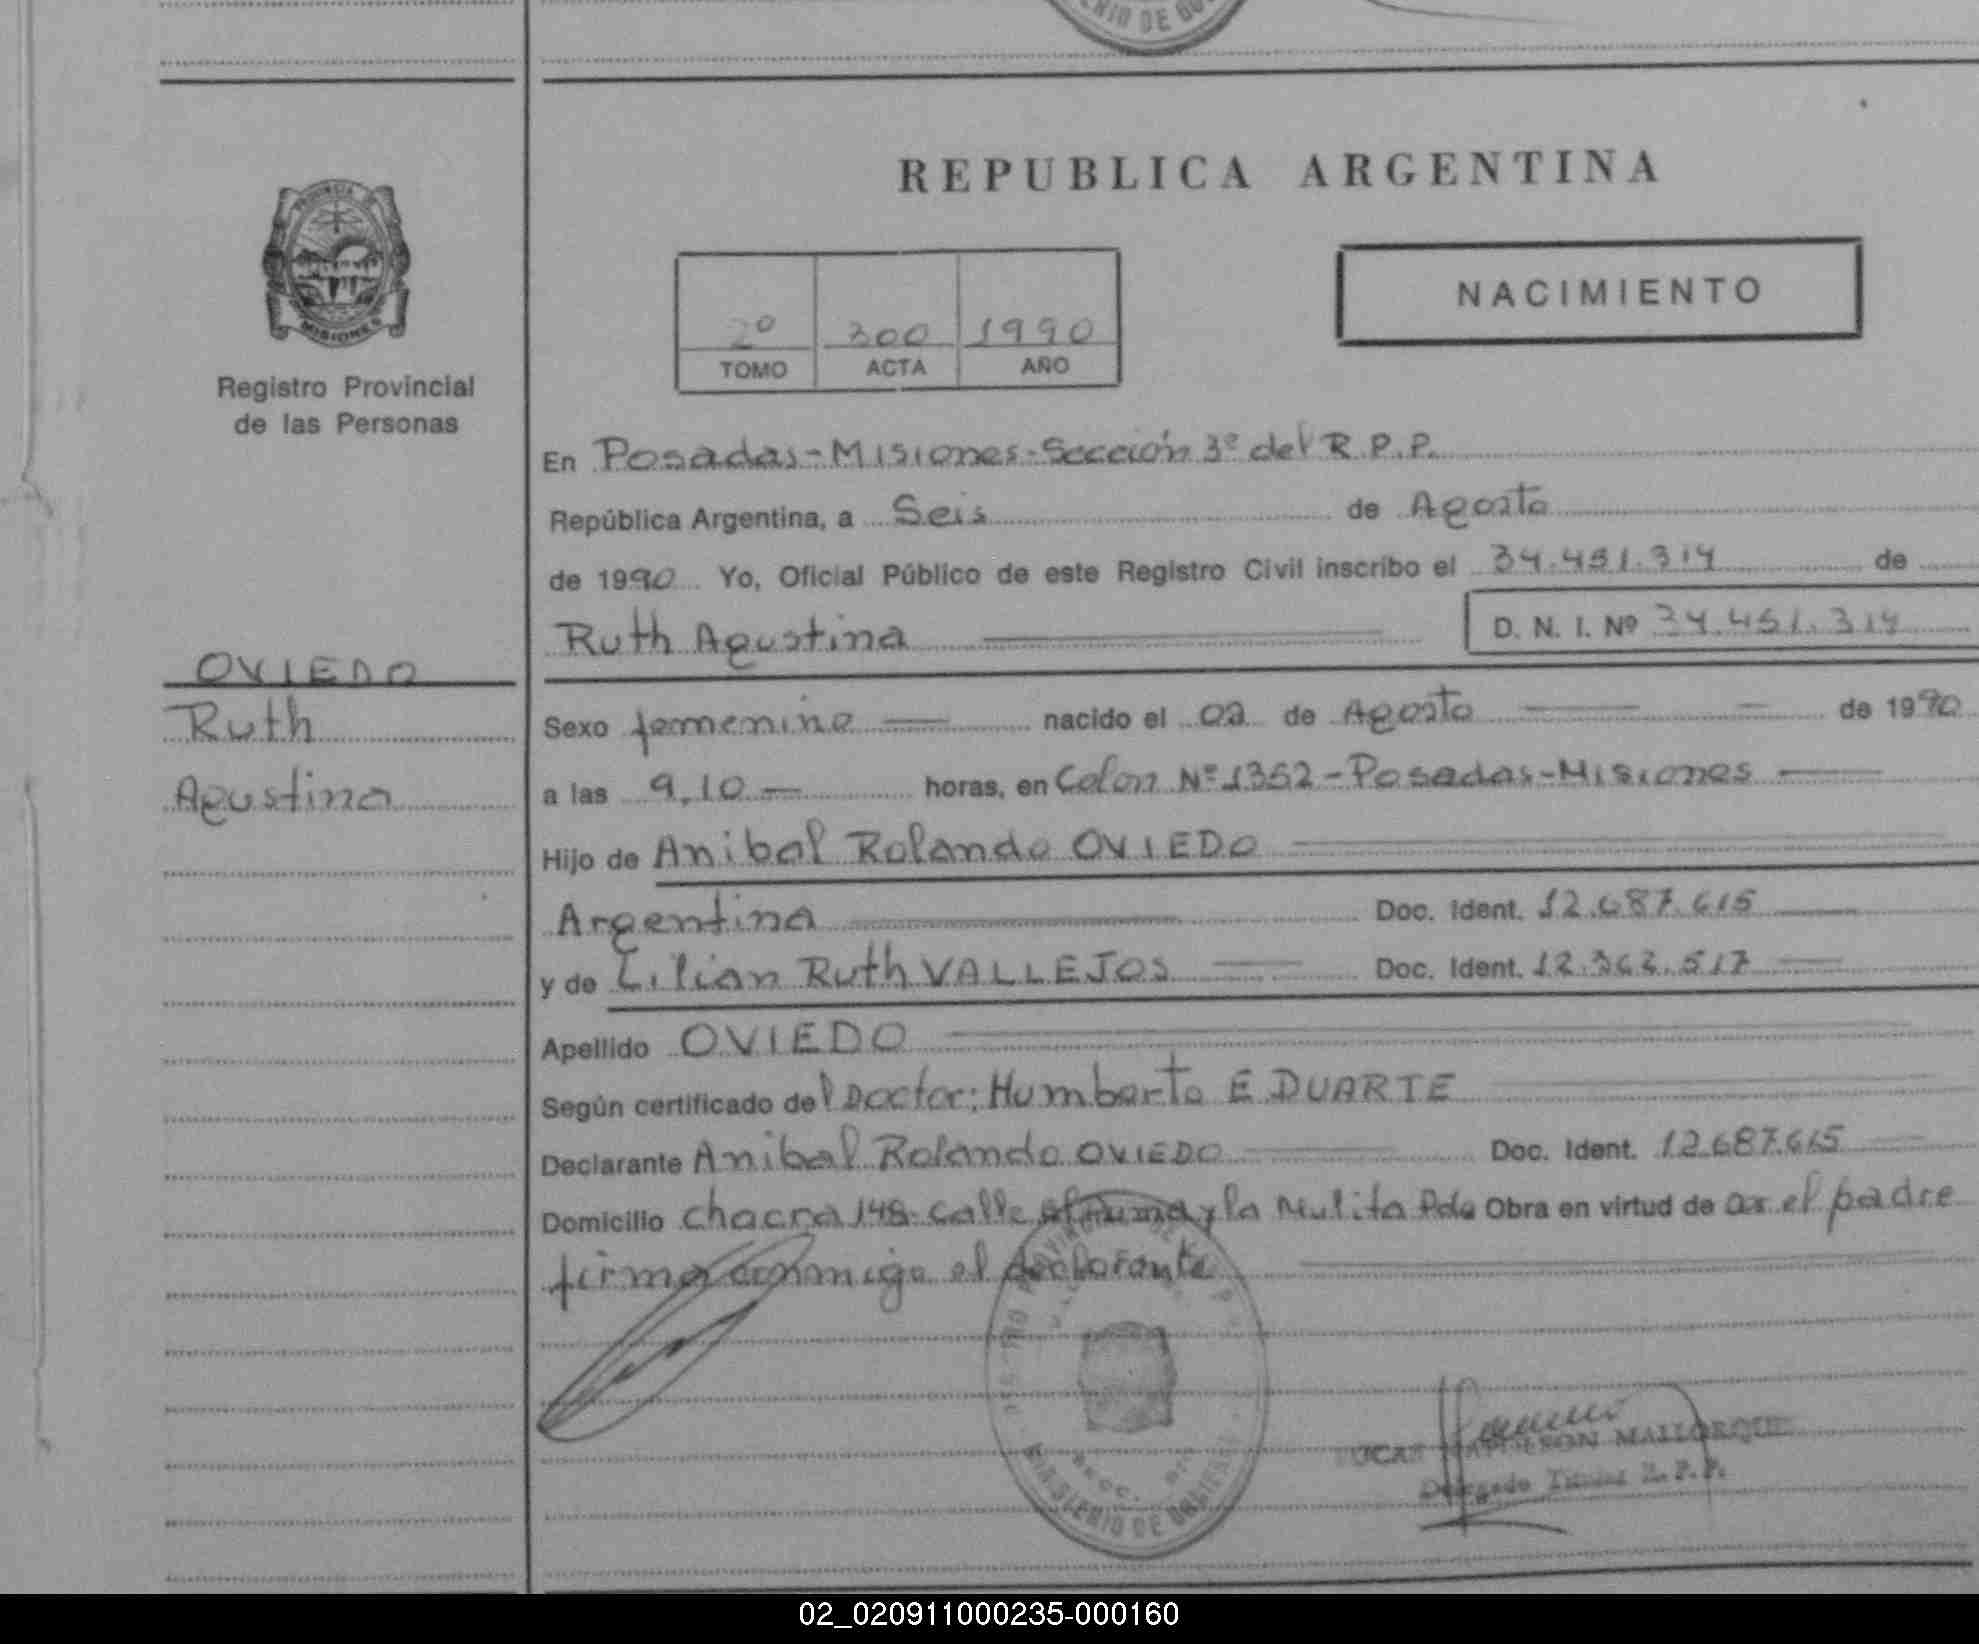 REPUBLICA ARGENTINA
PROVINCIA
MISIONES
Registro Provincial
de las Personas
NACIMIENTO
2º 300 1990
TOMO ACTA AÑO
En Posadas-Misiones-Sección 3º del R.P.P.
República Argentina, a Seis de Agosto
de 1990 Yo, Oficial Público de este Registro Civil inscribo el 34.451.314 de
Ruth Agustina D. N. I. Nº 34.451.314
OVIEDO
Ruth
Agustina
Sexo femenino nacido el 02 de Agosto de 1990
a las 9,10 horas, en Colon Nº 1352-Posadas-Misiones
Hijo de Anibal Rolando OVIEDO
Argentina Doc. Ident. 12.687.615
y de Lilian Ruth VALLEJOS Doc. Ident. 12.362.517
Apellido OVIEDO
Según certificado del Doctor: Humberto E DUARTE
Declarante Anibal Rolando OVIEDO Doc. Ident. 12.687.615
Domicilio chacra 148 calle y la Mulita Pda Obra en virtud de el padre
firma conmigo el declarante
MALLORQUIN
Delegado Titular R.P.P.
MINISTERIO DE GOBIERNO
02_020911000235-000160